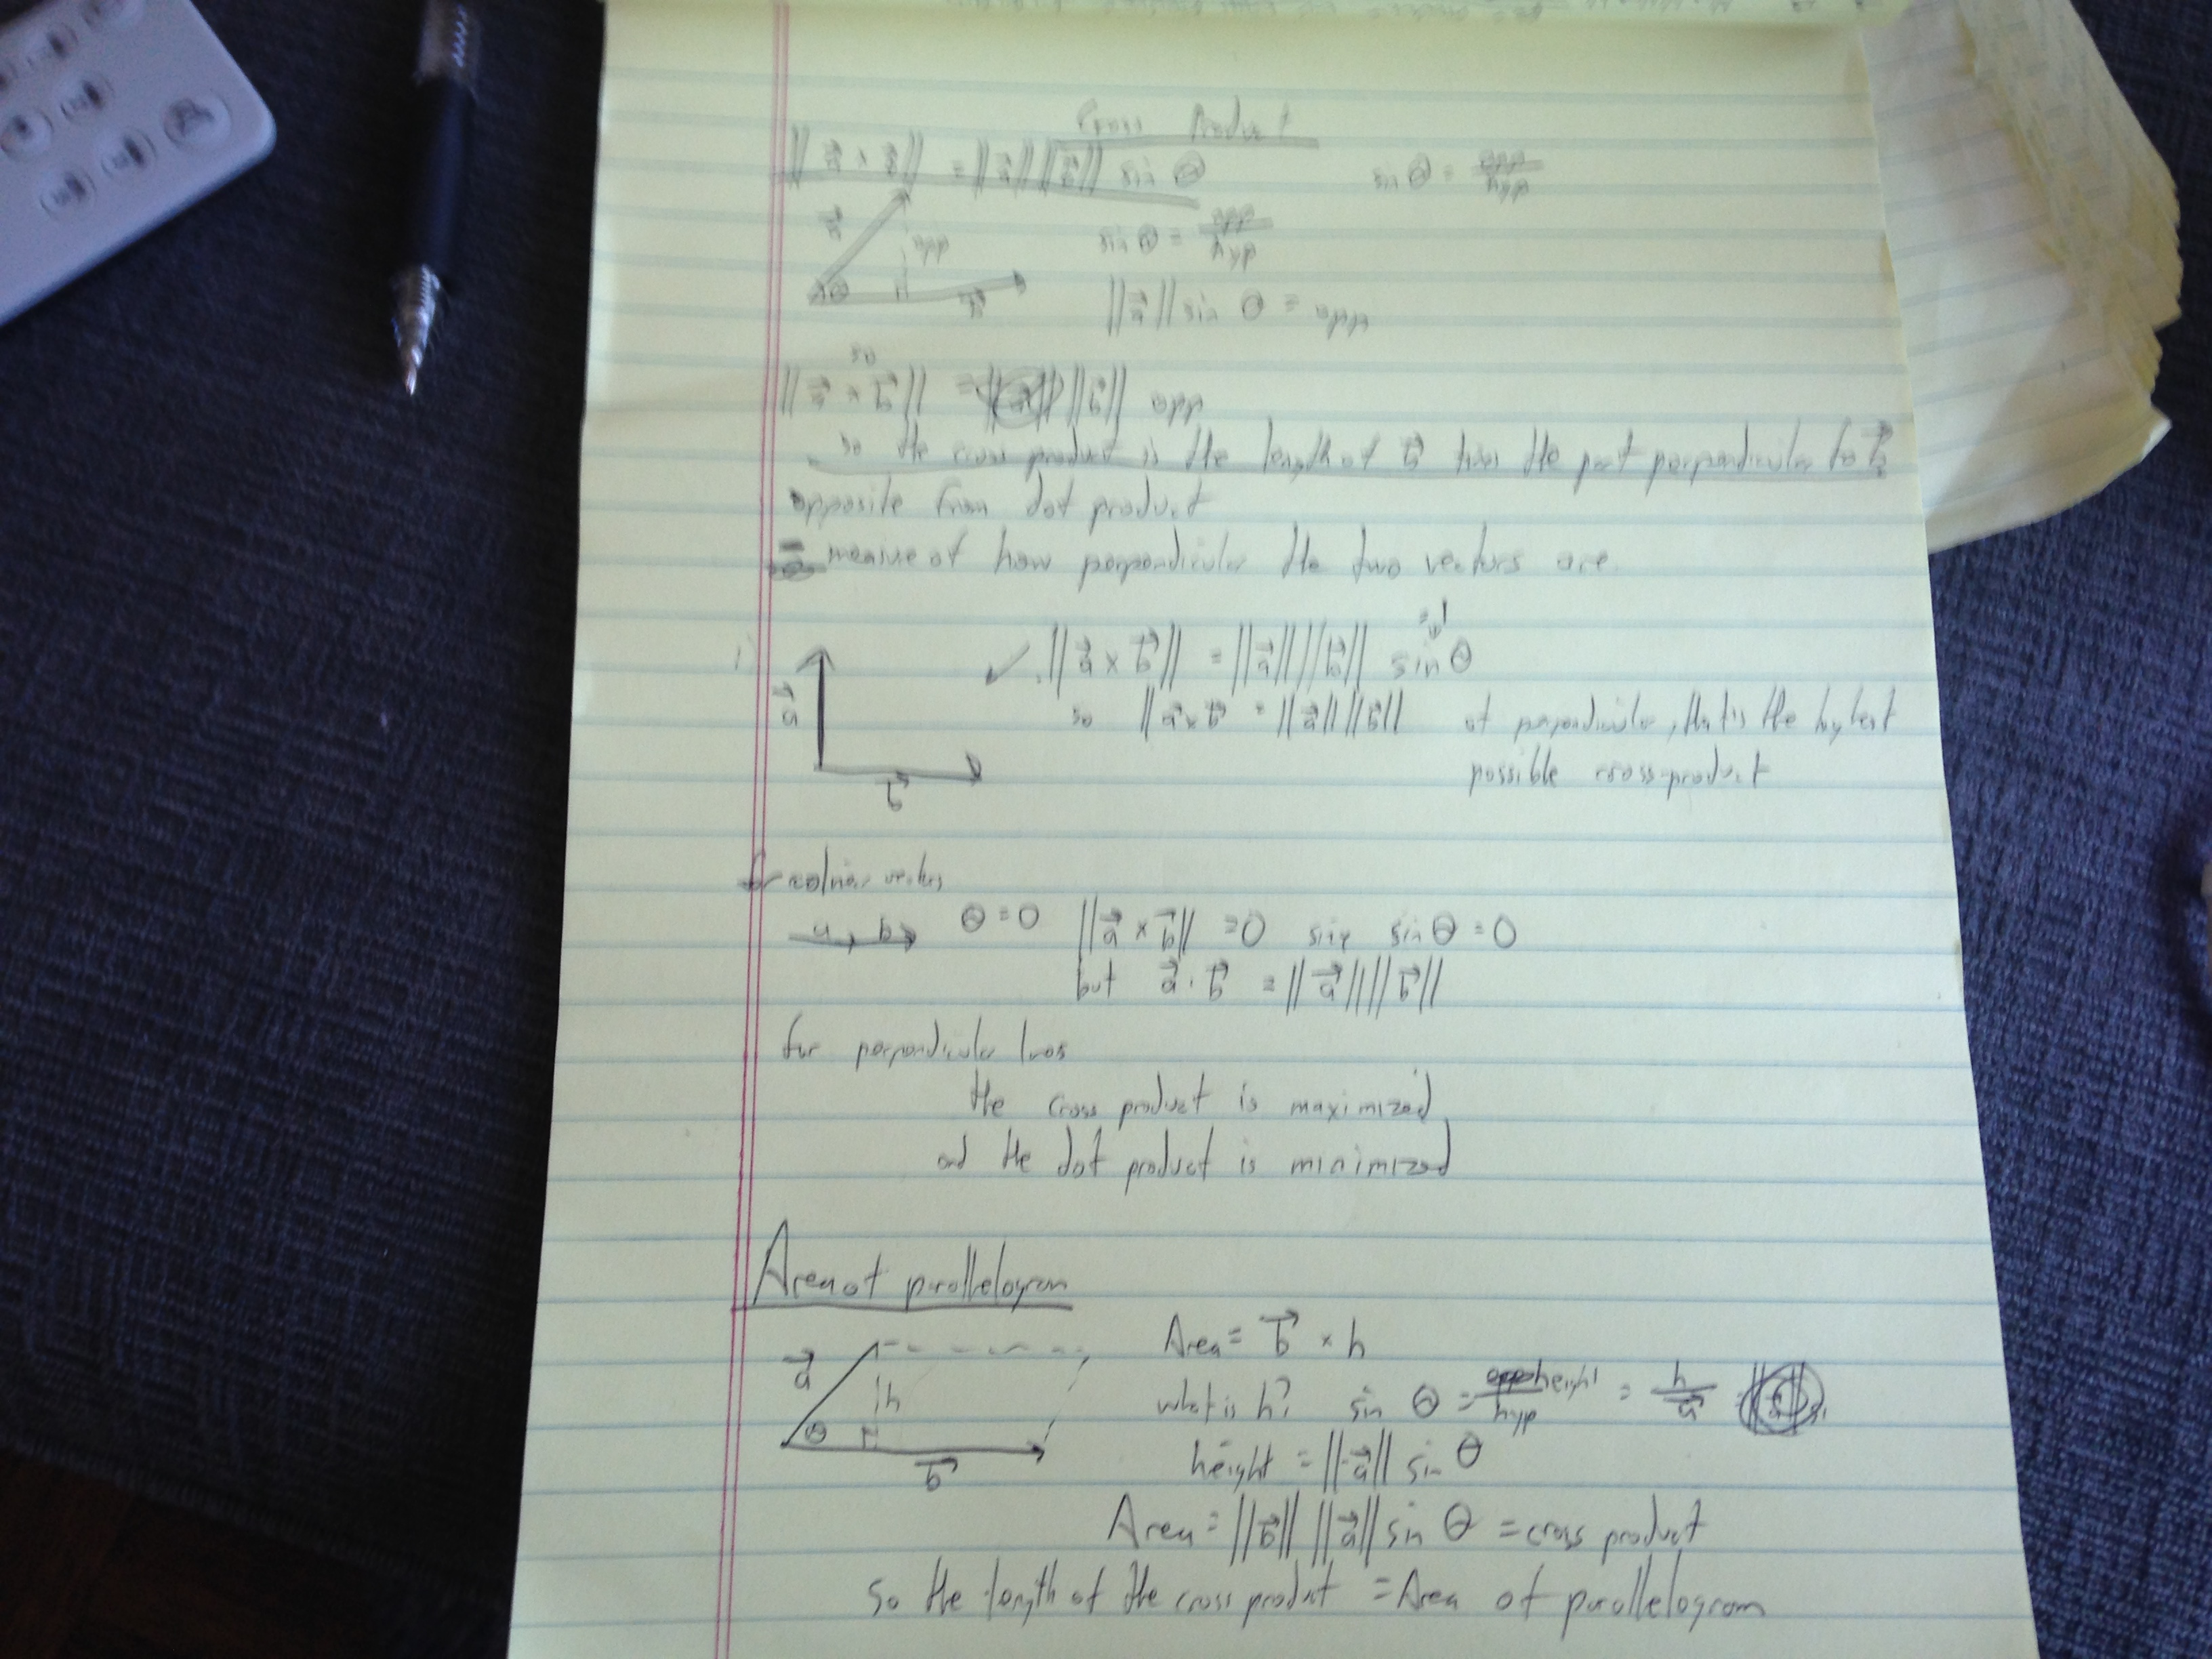 Cross Product
|| a⃗ x b⃗ || = ||a⃗|| ||b⃗|| sin θ
sin θ = opp/hyp
sin θ = opp/hyp
a⃗
opp
θ
b⃗
||a⃗|| sin θ = opp
so
|| a⃗ x b⃗ || = ||b⃗|| opp
so the cross product is the length of b⃗ times the part perpendicular to b⃗
opposite from dot product
measure of how perpendicular the two vectors are.
|| a⃗ x b⃗ || = ||a⃗|| ||b⃗|| sin θ
a⃗
b⃗
so || a⃗ x b⃗ = ||a⃗|| ||b⃗||
if perpendicular, that is the highest
possible cross-product
for colinear vectors
a b θ = 0 ||a⃗ x b⃗|| = 0 sin θ = 0
but a⃗ · b⃗ = ||a⃗|| ||b⃗||
for perpendicular
the cross product is maximized
and the dot product is minimized
Area of parallelogram
Area = b⃗ x h
a⃗
h
θ
b⃗
what is h? sin θ = height/hyp = h/a⃗
height = ||a⃗|| sin θ
Area = ||b⃗|| ||a⃗|| sin θ = cross product
So the length of the cross product = Area of parallelogram